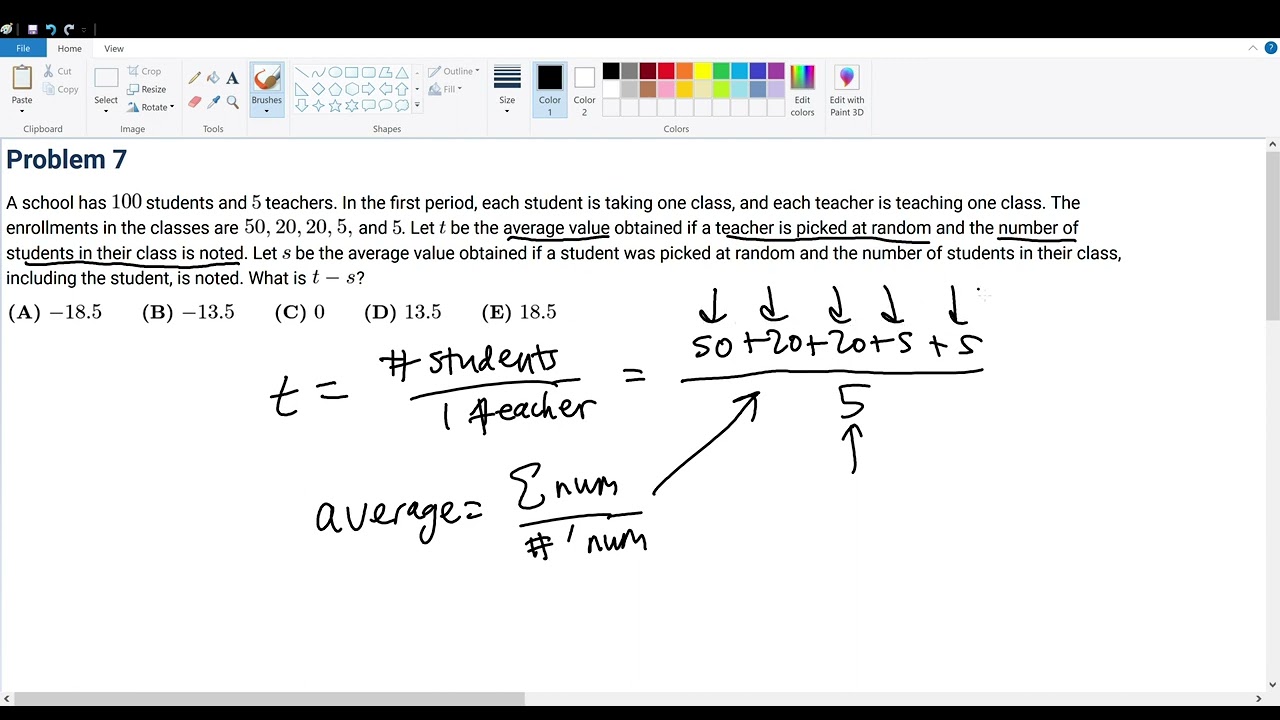 File Home View
Paste
Cut
Copy
Clipboard
Select
Crop
Resize
Rotate
Image
A
Tools
Brushes
Shapes
Outline
Fill
Size
Color 1
Color 2
Colors
Edit colors
Edit with Paint 3D
Problem 7
A school has 100 students and 5 teachers. In the first period, each student is taking one class, and each teacher is teaching one class. The
enrollments in the classes are 50, 20, 20, 5, and 5. Let t be the average value obtained if a teacher is picked at random and the number of
students in their class is noted. Let s be the average value obtained if a student was picked at random and the number of students in their class,
including the student, is noted. What is t − s?
(A) −18.5 (B) −13.5 (C) 0 (D) 13.5 (E) 18.5
t = # students / 1 teacher = 50+20+20+5+5 / 5
average = Σ num / # num